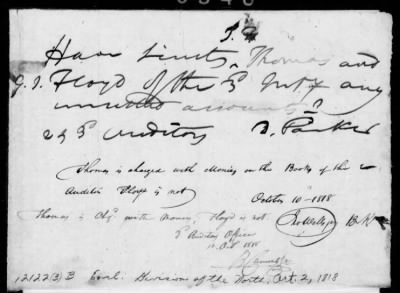 Have Lieuts. Thomas and
G. J. Floyd of the 3d Inf'y any
unsettled accounts?
2d & 3d Auditors D. Parker
Thomas is charged with Monies on the Books of the 2
Auditor Floyd is not
October 10th 1818
Thomas is chg'd with monies, Floyd is not
3d Auditors Office
Oct 1818
12122(3) B Encl: Division of the North, Oct. 2, 1818